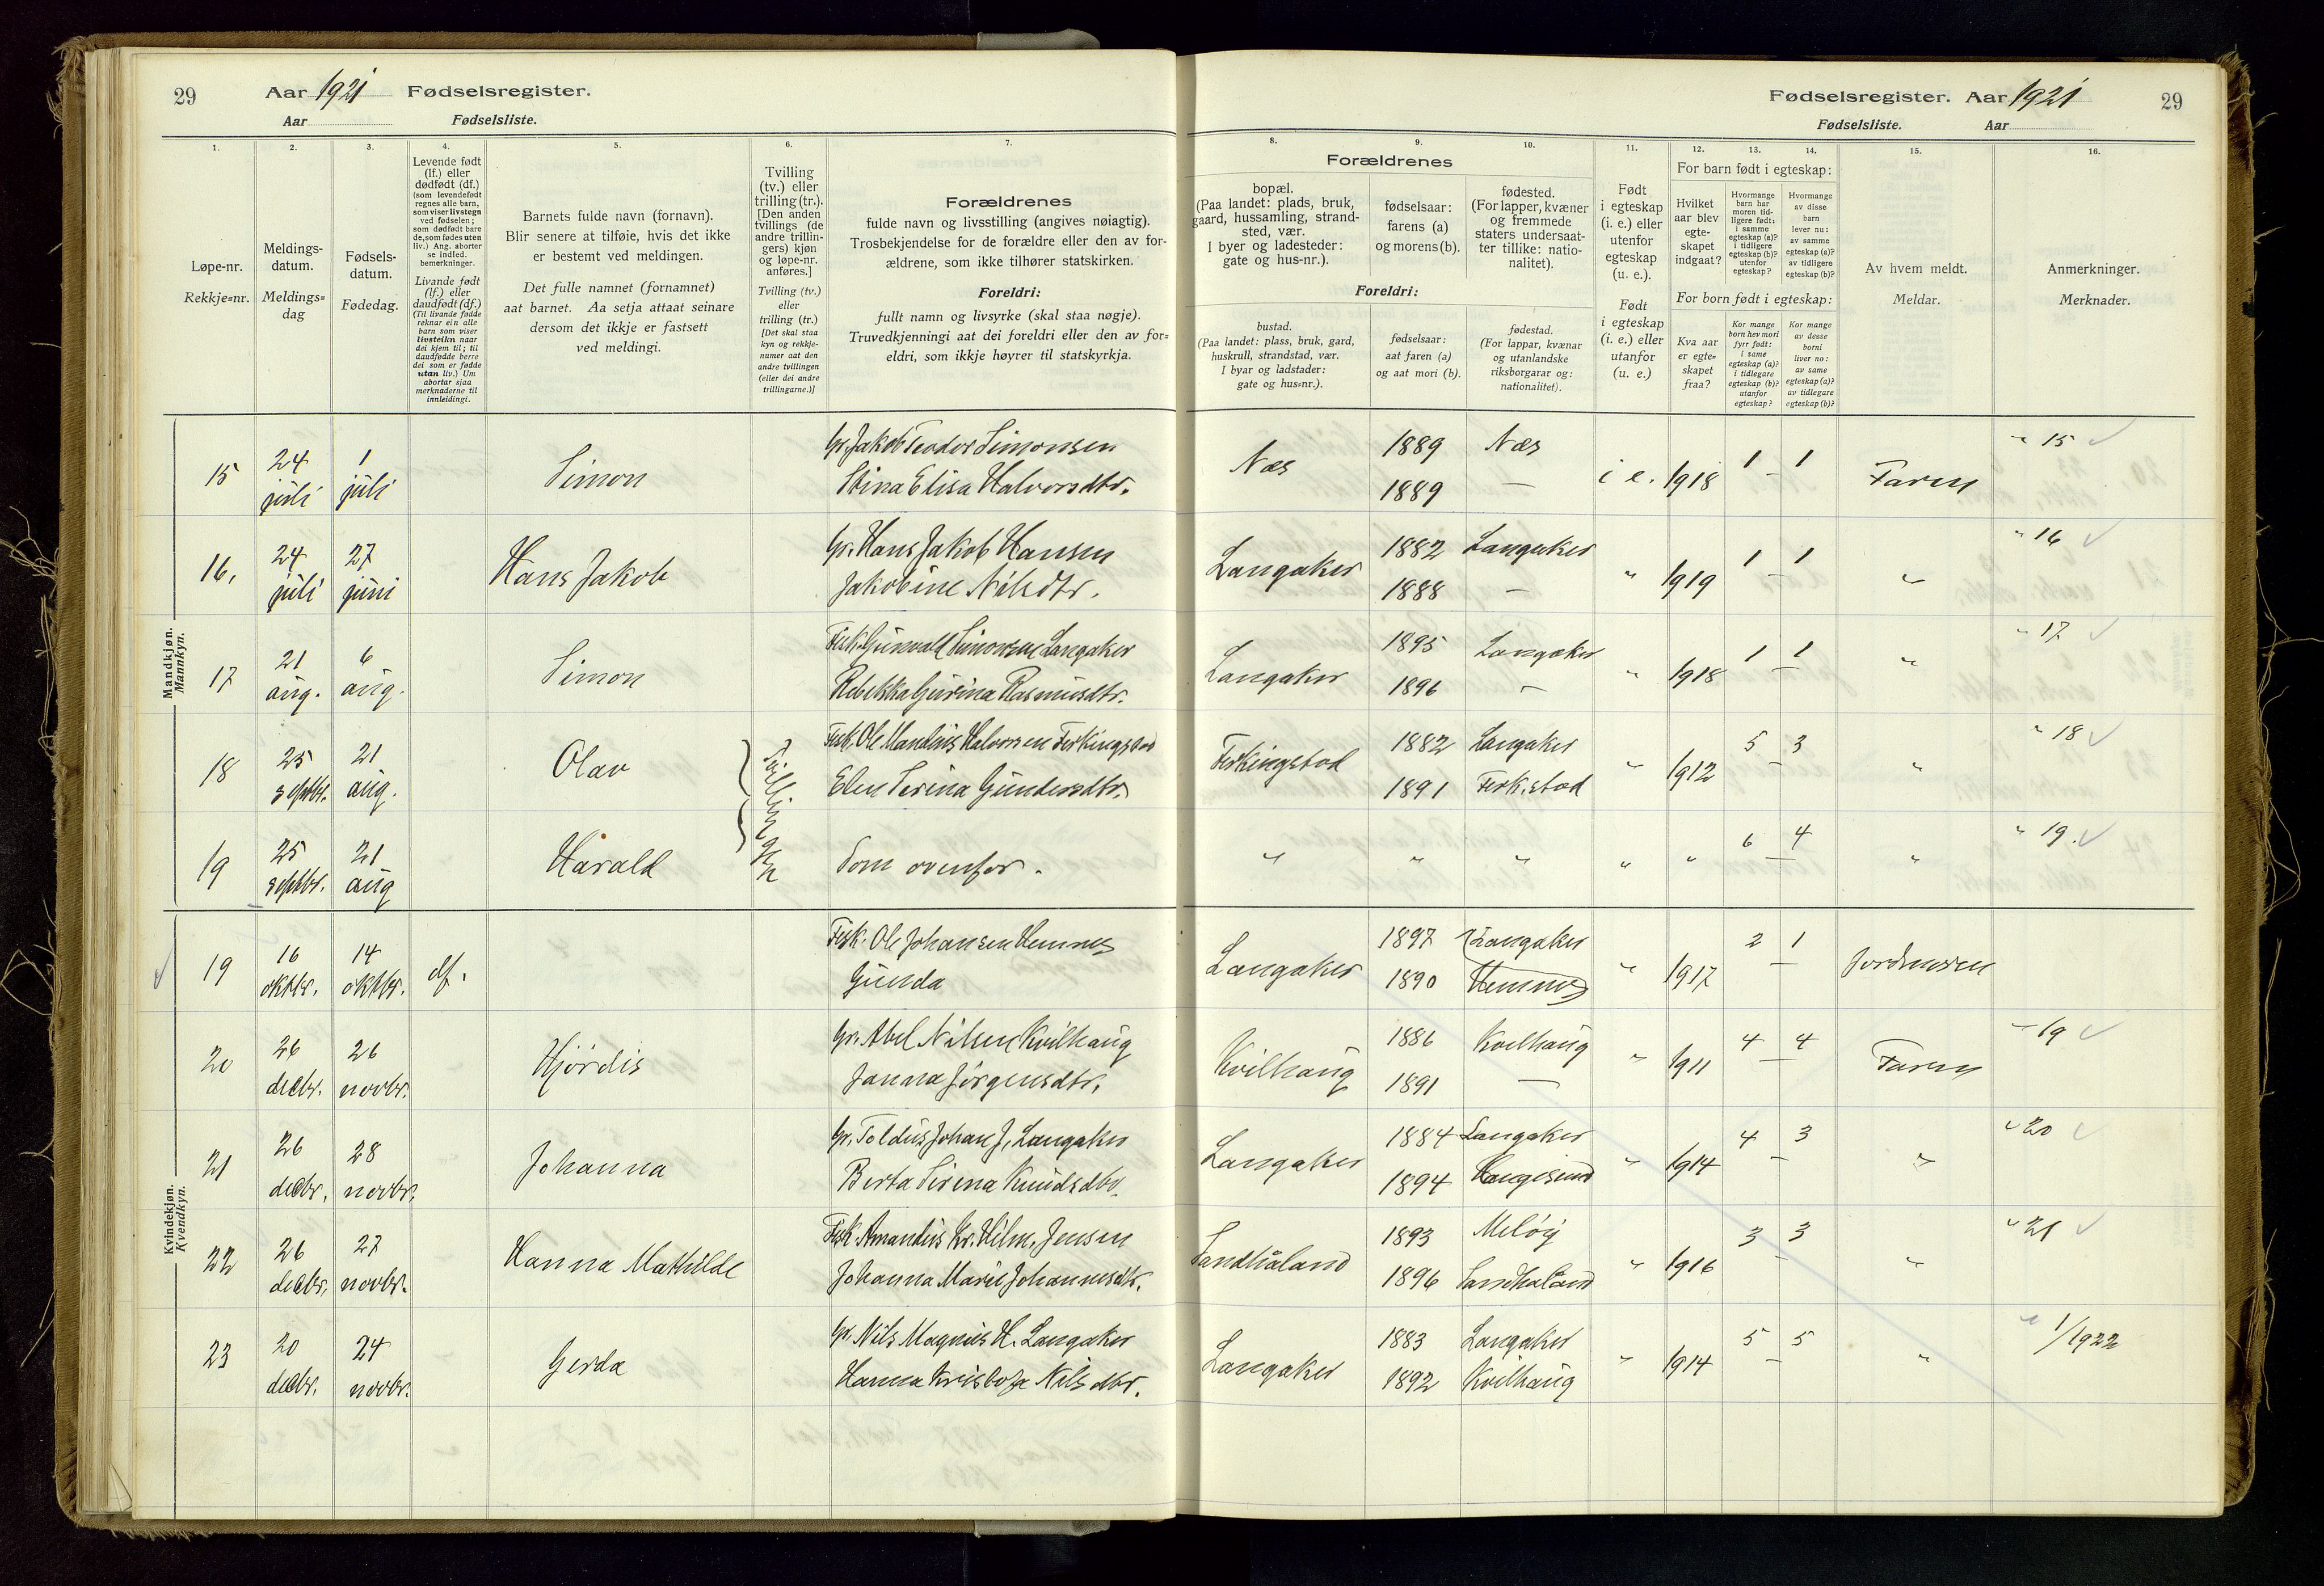 29 Aar 1921 Fødselsregister.
Aar Fødselsliste.
Fødselsregister. Aar 1921 29
Fødselsliste. Aar
1.
Løpe-nr.
Rekkje=nr.
2.
Meldings-
datum.
Meldings=
dag
3.
Fødsels-
datum.
Fødedag.
4.
Levende født
(lf.) eller
dødfødt (df.)
(som levendefødt
regnes alle barn,
som viser livstegn
ved fødselen;
som dødfødt bare
de, som fødes uten
liv.) Ang. aborter
se indled.
bemerkninger.
Livande født
(lf.) eller
daudfødt (df.)
(Til livande fødde
reknar ein alle
barn som viser
livsteikn naar
dei kjem til; til
daudfødde berre
dei som er fødde
utan liv.) Um
abortar sjaa
merknaderne til
innleidingi.
5.
Barnets fulde navn (fornavn).
Blir senere at tilføie, hvis det ikke
er bestemt ved meldingen.
Det fulle namnet (fornamnet)
aat barnet. Aa setja attaat seinare
dersom det ikkje er fastsett
ved meldingi.
6.
Tvilling
(tv.) eller
trilling (tr.).
[Den anden
tvillings (de
andre trillin-
gers) kjøn
og løpe-nr.
anføres.]
Tvilling (tv.)
eller
trilling (tr.)
[Det skal staa
kyn og rekkje-
numer aat den
andre tvillingen
(eller dei andre
trillingarne.)]
7.
Forældrenes
fulde navn og livsstilling (angives nøiagtig).
Trosbekjendelse for de forældre eller den av for-
ældrene, som ikke tilhører statskirken.
Foreldri:
fullt namn og livsyrke (skal staa nøgje).
Truvedkjenningi aat dei foreldri eller den av for=
eldri, som ikkje høyrer til statskyrkja.
8. 9. 10.
Forældrenes
bopæl.
(Paa landet: plads, bruk,
gaard, hussamling, strand-
sted, vær.
I byer og ladesteder:
gate og hus-nr.).
fødselsaar:
farens (a)
og morens (b).
fødested.
(For lapper, kvæner
og fremmede
staters undersaat-
ter tillike: natio-
nalitet).
Foreldri:
bustad.
(Paa landet: plass, bruk, gard,
huskrull, strandstad, vær.
I byar og ladstader:
gate og hus=nr.).
fødselsaar:
aat faren (a)
og aat mori (b).
fødestad.
(For lappar, kvænar
og utanlandske
riksborgarar og:
nationalitet).
11.
Født
i egteskap
(i. e.) eller
utenfor
egteskap
(u. e.).
Født
i egteskap
(i. e.) eller
utanfor
(u. e.)
12. 13. 14.
For barn født i egteskap:
Hvilket
aar blev
egte-
skapet
indgaat?
Hvormange
barn har
moren tid-
ligere født:
i samme
egteskap (a)?
i tidligere
egteskap (b)?
utenfor
egteskap?
Hvormange
av disse
barn
lever nu:
av samme
egteskap (a)?
av tidligere
egteskap (b)?
For born født i egteskap:
Kva aar
er egte=
skapet
fraa?
Kor mange
born hev mori
fyrr født:
i same
egteskap (a)?
i tidlegare
egteskap (b)?
utanfor
egteskap?
Kor mange
av desse
borni
liver no:
av same
egteskap (a)?
av tidlegare
egteskap (b)?
15.
Av hvem meldt.
Meldar.
16.
Anmerkninger.
Merknader.
Mandkjøn.
Mankyn.
15 24 juli 1 juli Simon Gr. Jakob Teodor Simonsen Næs 1889 Næs i e. 1918 1 – 1 Faren " 15
Stina Elisa Halvorsdtr. 1889 —
16. 24 juli 27 juni Hans Jakob Gr. Hans Jakob Hansen Langaker 1882 Langaker " 1919 1 – 1 " " 16
Jakobine Nilsdtr. 1888 —
17 21 aug. 6 aug. Simon Fisk. Gunvald Simonsen Langaker Langaker 1895 Langaker " 1918 1 – 1 " " 17
Rebekka Gurina Rasmusdtr. 1896 —
18 25 septbr. 21 aug. Olav Tvillinger Fisk. Ole Mandius Halvorsen Ferkingstad Ferkingstad 1882 Langaker " 1912 5 – 3 " " 18
Elen Serina Gundersdtr. 1891 Ferk.stad
19 25 septbr. 21 aug Harald Som ovenfor. " " " " " 6 – 4 " " 19.
Kvindekjøn.
Kvendkyn.
19 16 oktbr. 14 oktbr. df. Fisk. Ole Johansen Hemnes Langaker 1897 Langaker " 1917 2 – 1 Jordmoren
Gunda 1890 Hemnes
20 26 decbr. 26 novbr. Hjördis Gr. Abel Nilsen Kvilhaug Kvilhaug 1886 Kvilhaug " 1911 4 – 4 Faren " 19
Janna Jörgensdtr. 1891 —
21 26 decbr. 28 novbr. Johanna Gr. Toldus Johan J. Langaker Langaker 1884 Langaker " 1914 4 – 3 " " 20
Berta Sirina Knudsdtr. 1894 Haugesund
22 26 decbr. 27 novbr. Hanna Mathilde Fisk. Amandus Kr. Hilm. Jensen Sandhåland 1893 Melöy " 1916 3 – 3 " " 21
Johanna Marie Johannesdtr. 1896 Sandhåland
23 20 decbr. 24 novbr. Gerda Gr. Nils Magnus H. Langaker Langaker 1883 Langaker " 1914 5 – 5 " " 1/1922
Hanna Kristofa Nilsdtr. 1892 Kvilhaug